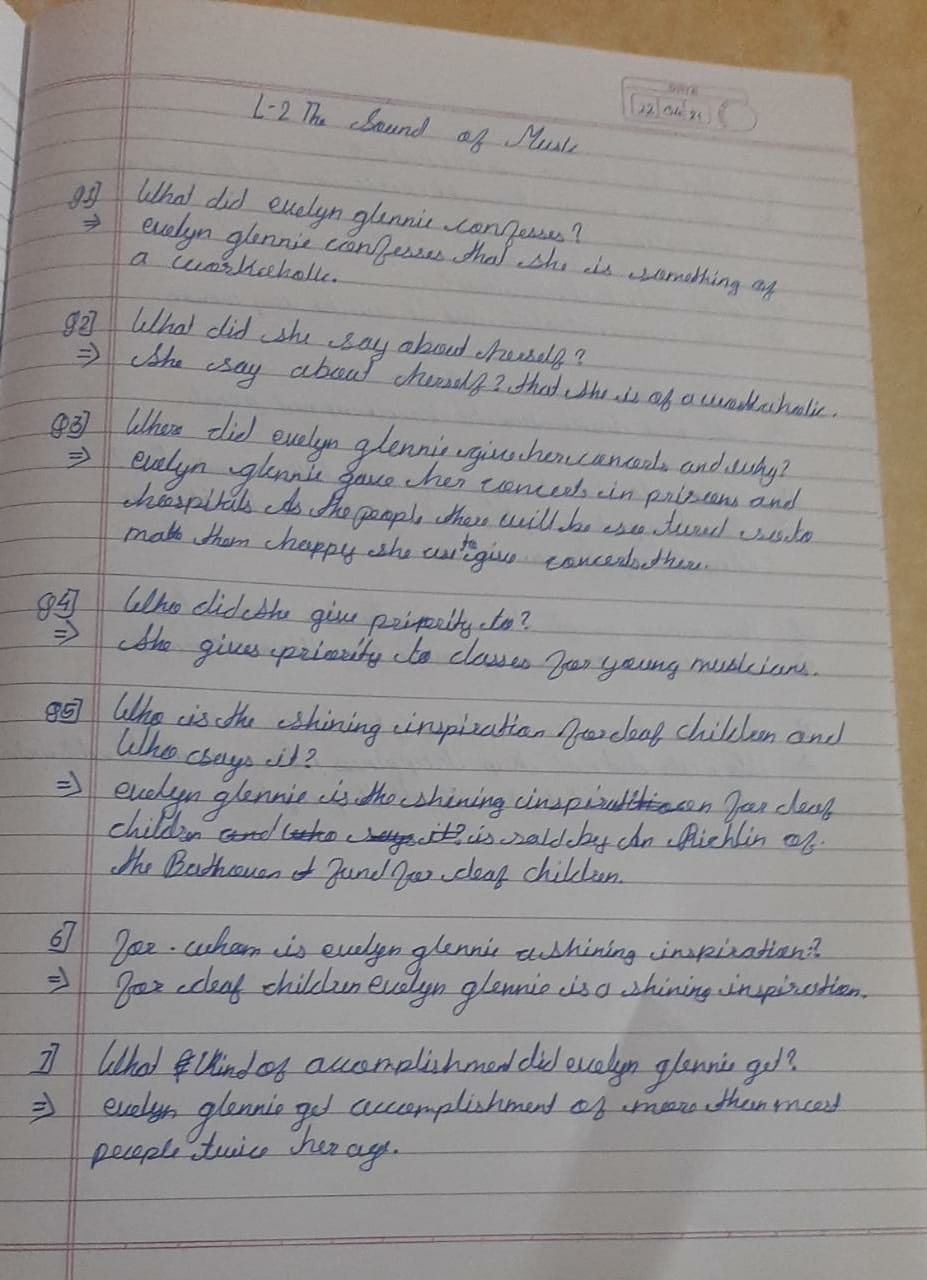 DATE
22 04 21
L-2 The Sound of Music
Q1] What did evelyn glennie confesses?
⇒ evelyn glennie confesses that she is something of
a workaholic.
Q2] What did she say about herself?
⇒ She say about herself? that she is of a workaholic.
Q3] Where did evelyn glennie give her concerts and why?
⇒ evelyn glennie gave her concerts in prisons and
hospitals As the people there will be so tired so to
make them happy she use to give concerts there.
Q4] Who did she give priority to?
⇒ She gives priority to classes for young musicians.
Q5] Who is the shining inspiration for deaf children and
Who says it?
⇒ evelyn glennie is the shining inspiration for deaf
children and who says it? is said by An Richlin of
the Beethoven Fund for deaf children.
6] For whom is evelyn glennie a shining inspiration?
⇒ For deaf children evelyn glennie is a shining inspiration.
7] What kind of accomplishment did evelyn glennie get?
⇒ evelyn glennie get accomplishment of more than most
people twice her age.